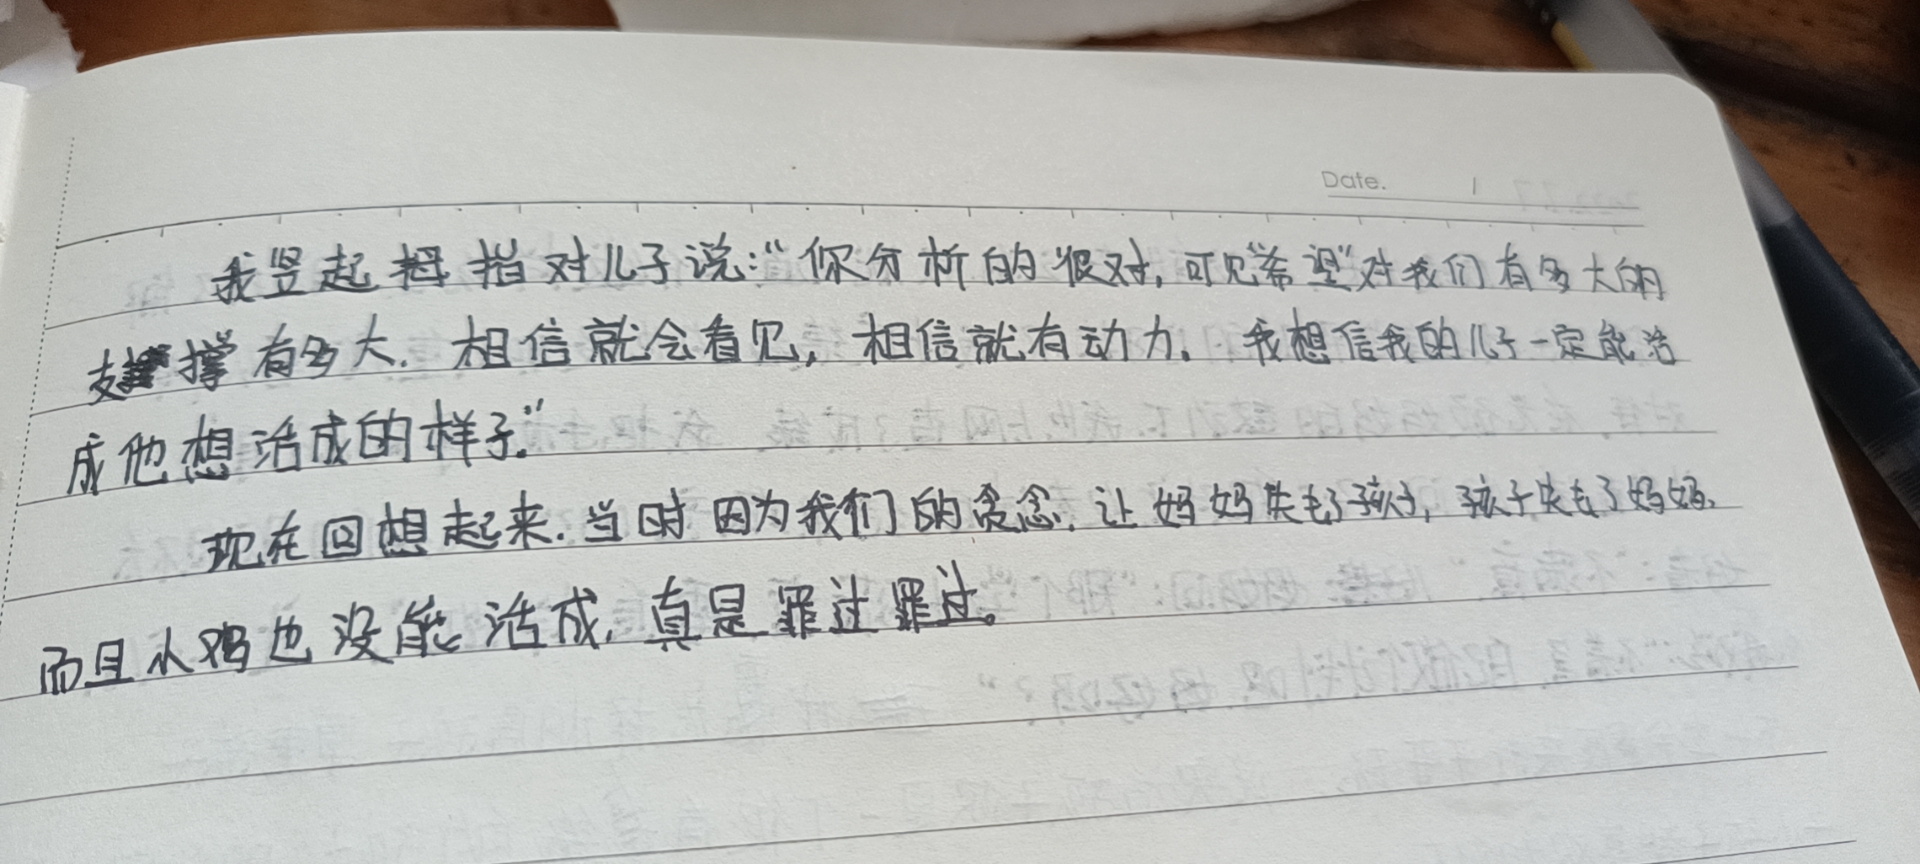 Date. /
我竖起拇指对儿子说:"你分析的很对,可见"希望"对我们有多大的
支撑有多大.相信就会看见,相信就有动力。我想信我的儿子一定能活
成他想活成的样子."
现在回想起来.当时因为我们的贪念,让妈妈失去了孩子,孩子失去了妈妈.
而且小鸡也没能活成,真是罪过罪过。